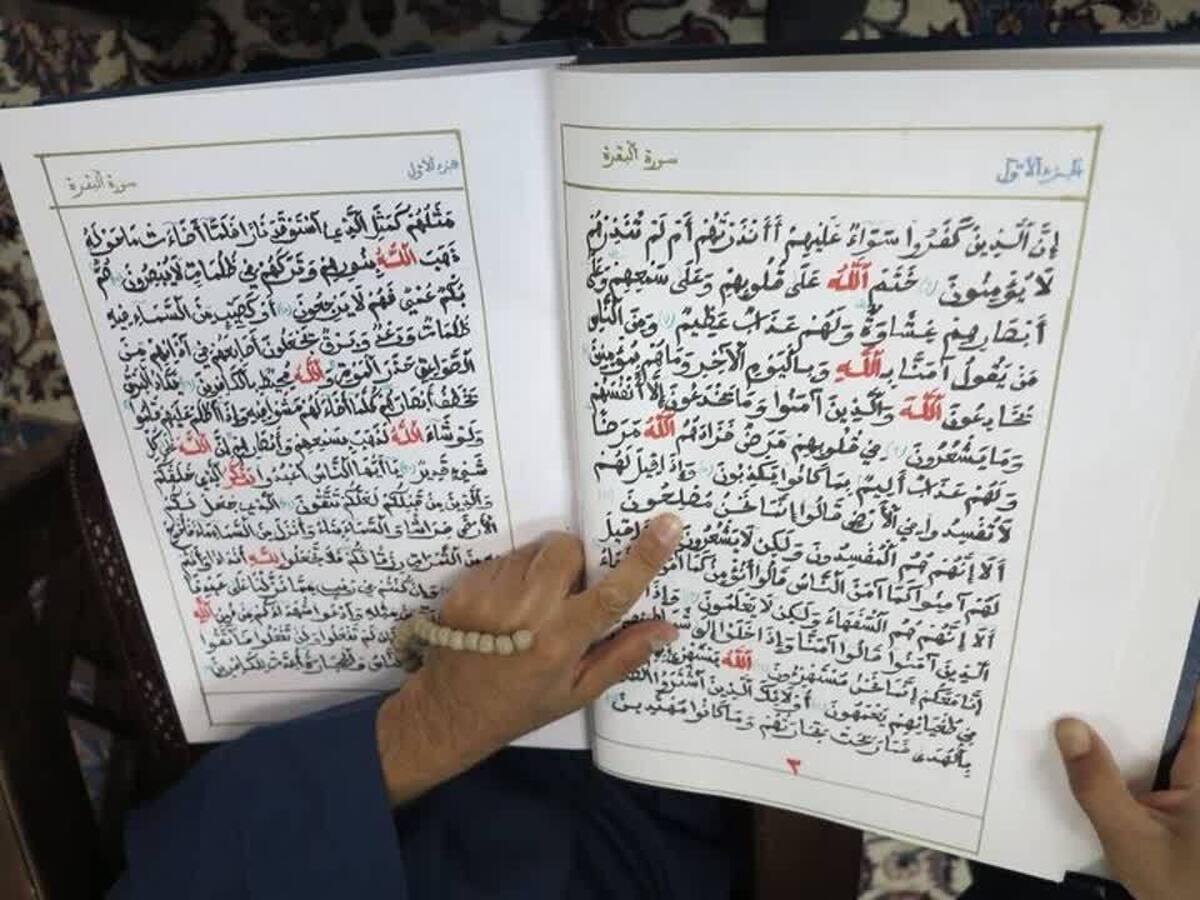 الجزء الأول
سورة البقرة
إِنَّ ٱلَّذِينَ كَفَرُوا سَوَاءٌ عَلَيْهِمْ أَأَنْذَرْتَهُمْ أَمْ لَمْ تُنْذِرْهُمْ
لَا يُؤْمِنُونَ خَتَمَ ٱللَّهُ عَلَى قُلُوبِهِمْ وَعَلَى سَمْعِهِمْ وَعَلَى
أَبْصَارِهِمْ غِشَاوَةٌ وَلَهُمْ عَذَابٌ عَظِيمٌ وَمِنَ النَّاسِ
مَنْ يَقُولُ آمَنَّا بِٱللَّهِ وَبِالْيَوْمِ الْآخِرِ وَمَا هُمْ بِمُؤْمِنِينَ
يُخَادِعُونَ ٱللَّهَ وَالَّذِينَ آمَنُوا وَمَا يَخْدَعُونَ إِلَّا أَنْفُسَهُمْ
وَمَا يَشْعُرُونَ فِي قُلُوبِهِمْ مَرَضٌ فَزَادَهُمُ ٱللَّهُ مَرَضًا
وَلَهُمْ عَذَابٌ أَلِيمٌ بِمَا كَانُوا يَكْذِبُونَ وَإِذَا قِيلَ لَهُمْ
لَا تُفْسِدُوا فِي الْأَرْضِ قَالُوا إِنَّمَا نَحْنُ مُصْلِحُونَ
أَلَا إِنَّهُمْ هُمُ الْمُفْسِدُونَ وَلَكِنْ لَا يَشْعُرُونَ قِيلَ
لَهُمْ آمِنُوا كَمَا آمَنَ النَّاسُ قَالُوا أَنُؤْمِنُ كَمَا
أَلَا إِنَّهُمْ هُمُ السُّفَهَاءُ وَلَكِنْ لَا يَعْلَمُونَ وَإِذَا
الَّذِينَ آمَنُوا قَالُوا آمَنَّا وَإِذَا خَلَوْا إِلَى
إِنَّا مَعَكُمْ إِنَّمَا نَحْنُ مُسْتَهْزِئُونَ ٱللَّهُ يَسْتَهْزِئُ
فِي طُغْيَانِهِمْ يَعْمَهُونَ أُولَئِكَ الَّذِينَ اشْتَرَوُا
بِالْهُدَى فَمَا رَبِحَتْ تِجَارَتُهُمْ وَمَا كَانُوا مُهْتَدِينَ
٣
الجزء الأول
سورة البقرة
مَثَلُهُمْ كَمَثَلِ الَّذِي اسْتَوْقَدَ نَارًا فَلَمَّا أَضَاءَتْ مَا حَوْلَهُ
ذَهَبَ ٱللَّهُ بِنُورِهِمْ وَتَرَكَهُمْ فِي ظُلُمَاتٍ لَا يُبْصِرُونَ صُمٌّ
بُكْمٌ عُمْيٌ فَهُمْ لَا يَرْجِعُونَ أَوْ كَصَيِّبٍ مِنَ السَّمَاءِ فِيهِ
ظُلُمَاتٌ وَرَعْدٌ وَبَرْقٌ يَجْعَلُونَ أَصَابِعَهُمْ فِي آذَانِهِمْ مِنَ
الصَّوَاعِقِ حَذَرَ الْمَوْتِ وَٱللَّهُ مُحِيطٌ بِالْكَافِرِينَ يَكَادُ الْبَرْقُ
يَخْطَفُ أَبْصَارَهُمْ كُلَّمَا أَضَاءَ لَهُمْ مَشَوْا فِيهِ وَإِذَا أَظْلَمَ عَلَيْهِمْ قَامُوا
وَلَوْ شَاءَ ٱللَّهُ لَذَهَبَ بِسَمْعِهِمْ وَأَبْصَارِهِمْ إِنَّ ٱللَّهَ عَلَى كُلِّ
شَيْءٍ قَدِيرٌ يَا أَيُّهَا النَّاسُ اعْبُدُوا رَبَّكُمُ الَّذِي خَلَقَكُمْ
وَالَّذِينَ مِنْ قَبْلِكُمْ لَعَلَّكُمْ تَتَّقُونَ الَّذِي جَعَلَ لَكُمُ
الْأَرْضَ فِرَاشًا وَالسَّمَاءَ بِنَاءً وَأَنْزَلَ مِنَ السَّمَاءِ مَاءً فَأَخْرَجَ
بِهِ مِنَ الثَّمَرَاتِ رِزْقًا لَكُمْ فَلَا تَجْعَلُوا لِلَّهِ أَنْدَادًا وَأَنْتُمْ
وَإِنْ كُنْتُمْ فِي رَيْبٍ مِمَّا نَزَّلْنَا عَلَى عَبْدِنَا
مِثْلِهِ وَادْعُوا شُهَدَاءَكُمْ مِنْ دُونِ ٱللَّهِ
لَمْ تَفْعَلُوا وَلَنْ تَفْعَلُوا فَاتَّقُوا
وَالْحِجَارَةُ أُعِدَّتْ لِلْكَافِرِينَ